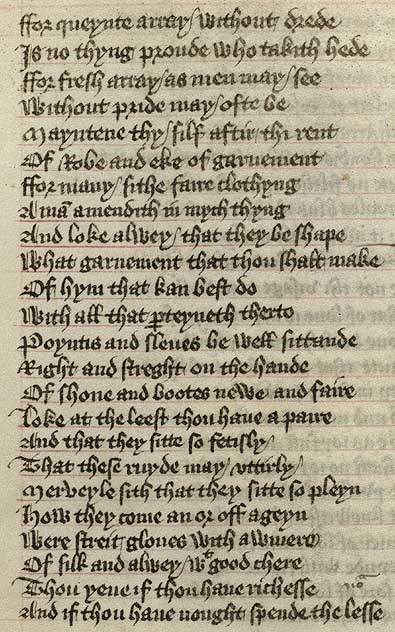 ffor queynte array / without drede
Is no thyng proude who takith hede
ffor fresh array / as men may / see
Without pride may / ofte be
Mayntene thy / silf aftir / thi rent
Of Robe and eke of garnement
ffor many / sithe faire clothyng
A mā amendith in mych thyng
And loke alwey / that they be shape
What garnement that thou shalt make
Of hym that kan best do
With all that ꝑteyneth therto
Poyntis and sleues be well sittande
Right and streght on the hande
Of shone and bootes newe and faire
Loke at the leest thou haue a paire
And that they sitte so fetisly /
That these ruyde may / vttirly /
Merveyle sith that they sitte so pleyn
How they come on or off ageyn
Were streit gloues with awmere
Of silk and alwey / wᵗ good chere
Thou yeue if thou haue richesse
And if thou haue nought spende the lesse